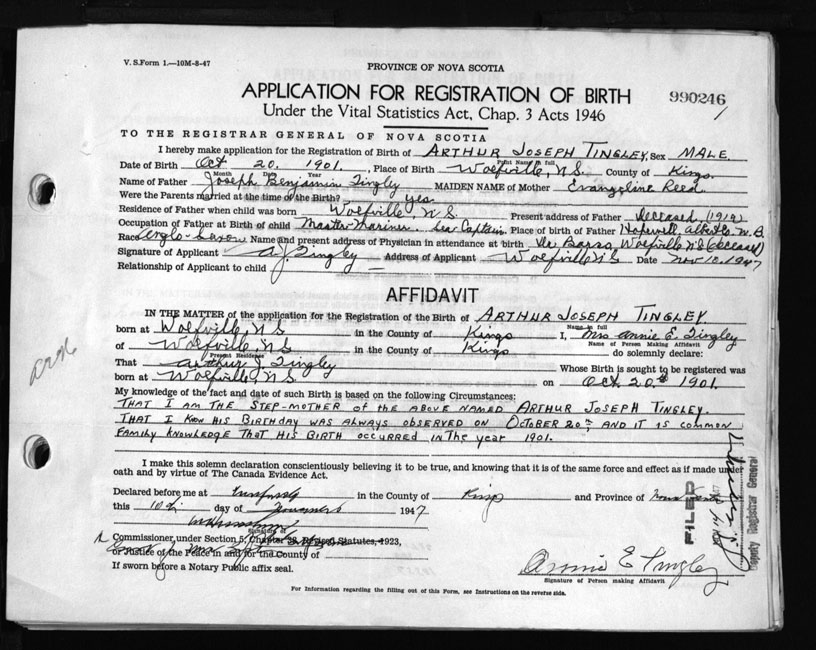 V. S. Form 1.—10M-8-47
PROVINCE OF NOVA SCOTIA
APPLICATION FOR REGISTRATION OF BIRTH
990246
1
Under the Vital Statistics Act, Chap. 3 Acts 1946
TO THE REGISTRAR GENERAL OF NOVA SCOTIA
I hereby make application for the Registration of Birth of ARTHUR JOSEPH TINGLEY, Sex MALE.
Print Name in full
Date of Birth Oct 20. 1901. , Place of Birth Wolfville, N.S. County of Kings.
Month Date Year
Name of Father Joseph Benjamin Tingley MAIDEN NAME of Mother Evangeline Reed.
Were the Parents married at the time of the Birth? Yes.
Residence of Father when child was born Wolfville N.S. Present address of Father deceased (1919)
Occupation of Father at Birth of Child Master Mariner. Sea Captain. Place of Birth of Father Hopewell, Albert Co. N.B.
Race Anglo-Saxon Name and present address of Physician in attendance at birth De Barss, Wolfville N.S (deceased)
Signature of Applicant A. J. Tingley Address of Applicant Wolfville N.S. Date Nov 10. 1947
Relationship of Applicant to child —
AFFIDAVIT
IN THE MATTER of the application for the Registration of the Birth of ARTHUR JOSEPH TINGLEY.
Name in full
born at Wolfville, N S in the County of Kings I, Mrs Annie E. Tingley
Name of Person Making Affidavit
of Wolfville, N S in the County of Kings do solemnly declare:
Present Residence
That Arthur J. Tingley Whose Birth is sought to be registered was
born at Wolfville, N S on Oct. 20th 1901.
My knowledge of the fact and date of such Birth is based on the following Circumstances:
THAT I AM THE STEP-MOTHER of the ABOVE NAMED ARTHUR JOSEPH TINGLEY.
THAT I KNOW HIS BIRTHDAY WAS ALWAYS OBSERVED ON OCTOBER 20TH, AND IT IS COMMON
FAMILY KNOWLEDGE THAT HIS BIRTH OCCURRED IN THE YEAR 1901.
I make this solemn declaration conscientiously believing it to be true, and knowing that it is of the same force and effect as if made under
oath and by virtue of The Canada Evidence Act.
Declared before me at in the County of Kings and Province of Nova Scotia
this 10th day of November 1947
Signature of
Commissioner, under Section 5, Chapter Revised Statutes, 1923,
or Justice of the Peace in and for the County of
If sworn before a Notary Public affix seal.
Annie E Tingley
Signature of Person making Affidavit
For Information regarding the filling out of this Form, see Instructions on the reverse side.
FILED
Deputy Registrar General